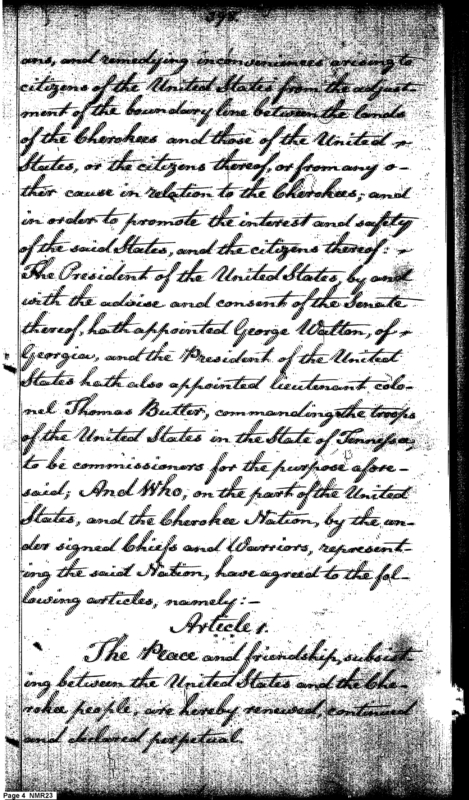 398.
ans, and remedying inconveniences arising to
citizens of the United States from the adjust-
ment of the boundary line between the lands
of the Cherokees and those of the United
States, or the citizens thereof, or from any o-
ther cause in relation to the Cherokees; and
in order to promote the interest and safety
of the said States, and the citizens thereof:
The President of the United States, by and
with the advise and consent of the Senate
thereof, hath appointed George Walton, of
Georgia, and the President of the United
States hath also appointed lieutenant colo-
nel Thomas Butler, commanding the troops
of the United States in the State of Tennessee,
to be commissioners for the purpose afore-
said; And Who, on the part of the United
States, and the Cherokee Nation, by the un-
der signed Chiefs and Warriors, represent-
ing the said Nation, have agreed to the fol-
lowing articles, namely:-
Article 1.
The Peace and friendship, subsist-
ing between the United States and the Che-
rokee people, are hereby renewed, continued
and declared perpetual.
Page 4 NMR23